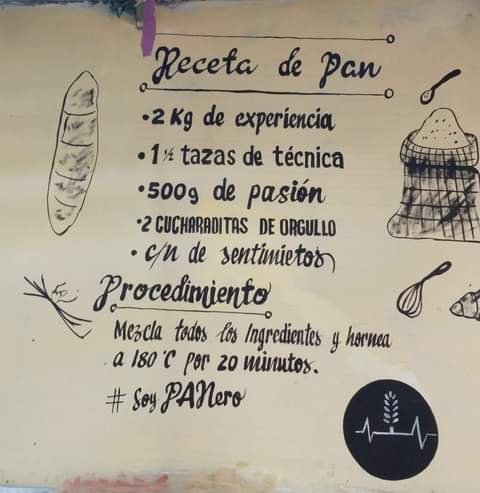 Receta de Pan
• 2 Kg de experiencia
• 1 ½ tazas de técnica
• 500g de pasión
• 2 CUCHARADITAS DE ORGULLO
• c/n de sentimietos
Procedimiento
Mezcla todos los Ingredientes y hornea
a 180°C por 20 minutos.
# Soy PANero